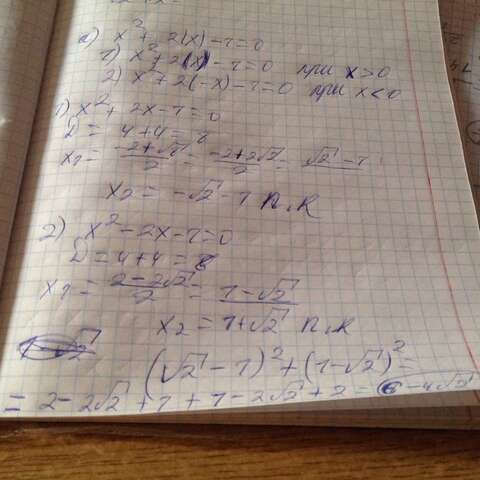 а) x² + 2(x) - 1 = 0
1) x² + 2(x) - 1 = 0 при x > 0
2) x² + 2(-x) - 1 = 0 при x < 0
1) x² + 2x - 1 = 0
D = 4 + 4 = 8
x1 = (-2 + √8)/2 = (-2 + 2√2)/2 = √2 - 1
x2 = -√2 - 1 п.к
2) x² - 2x - 1 = 0
D = 4 + 4 = 8
x1 = (2 - 2√2)/2 = 1 - √2
x2 = 1 + √2 п.к
(√2 - 1)² + (1 - √2)² =
= 2 - 2√2 + 1 + 1 - 2√2 + 2 = 6 - 4√2